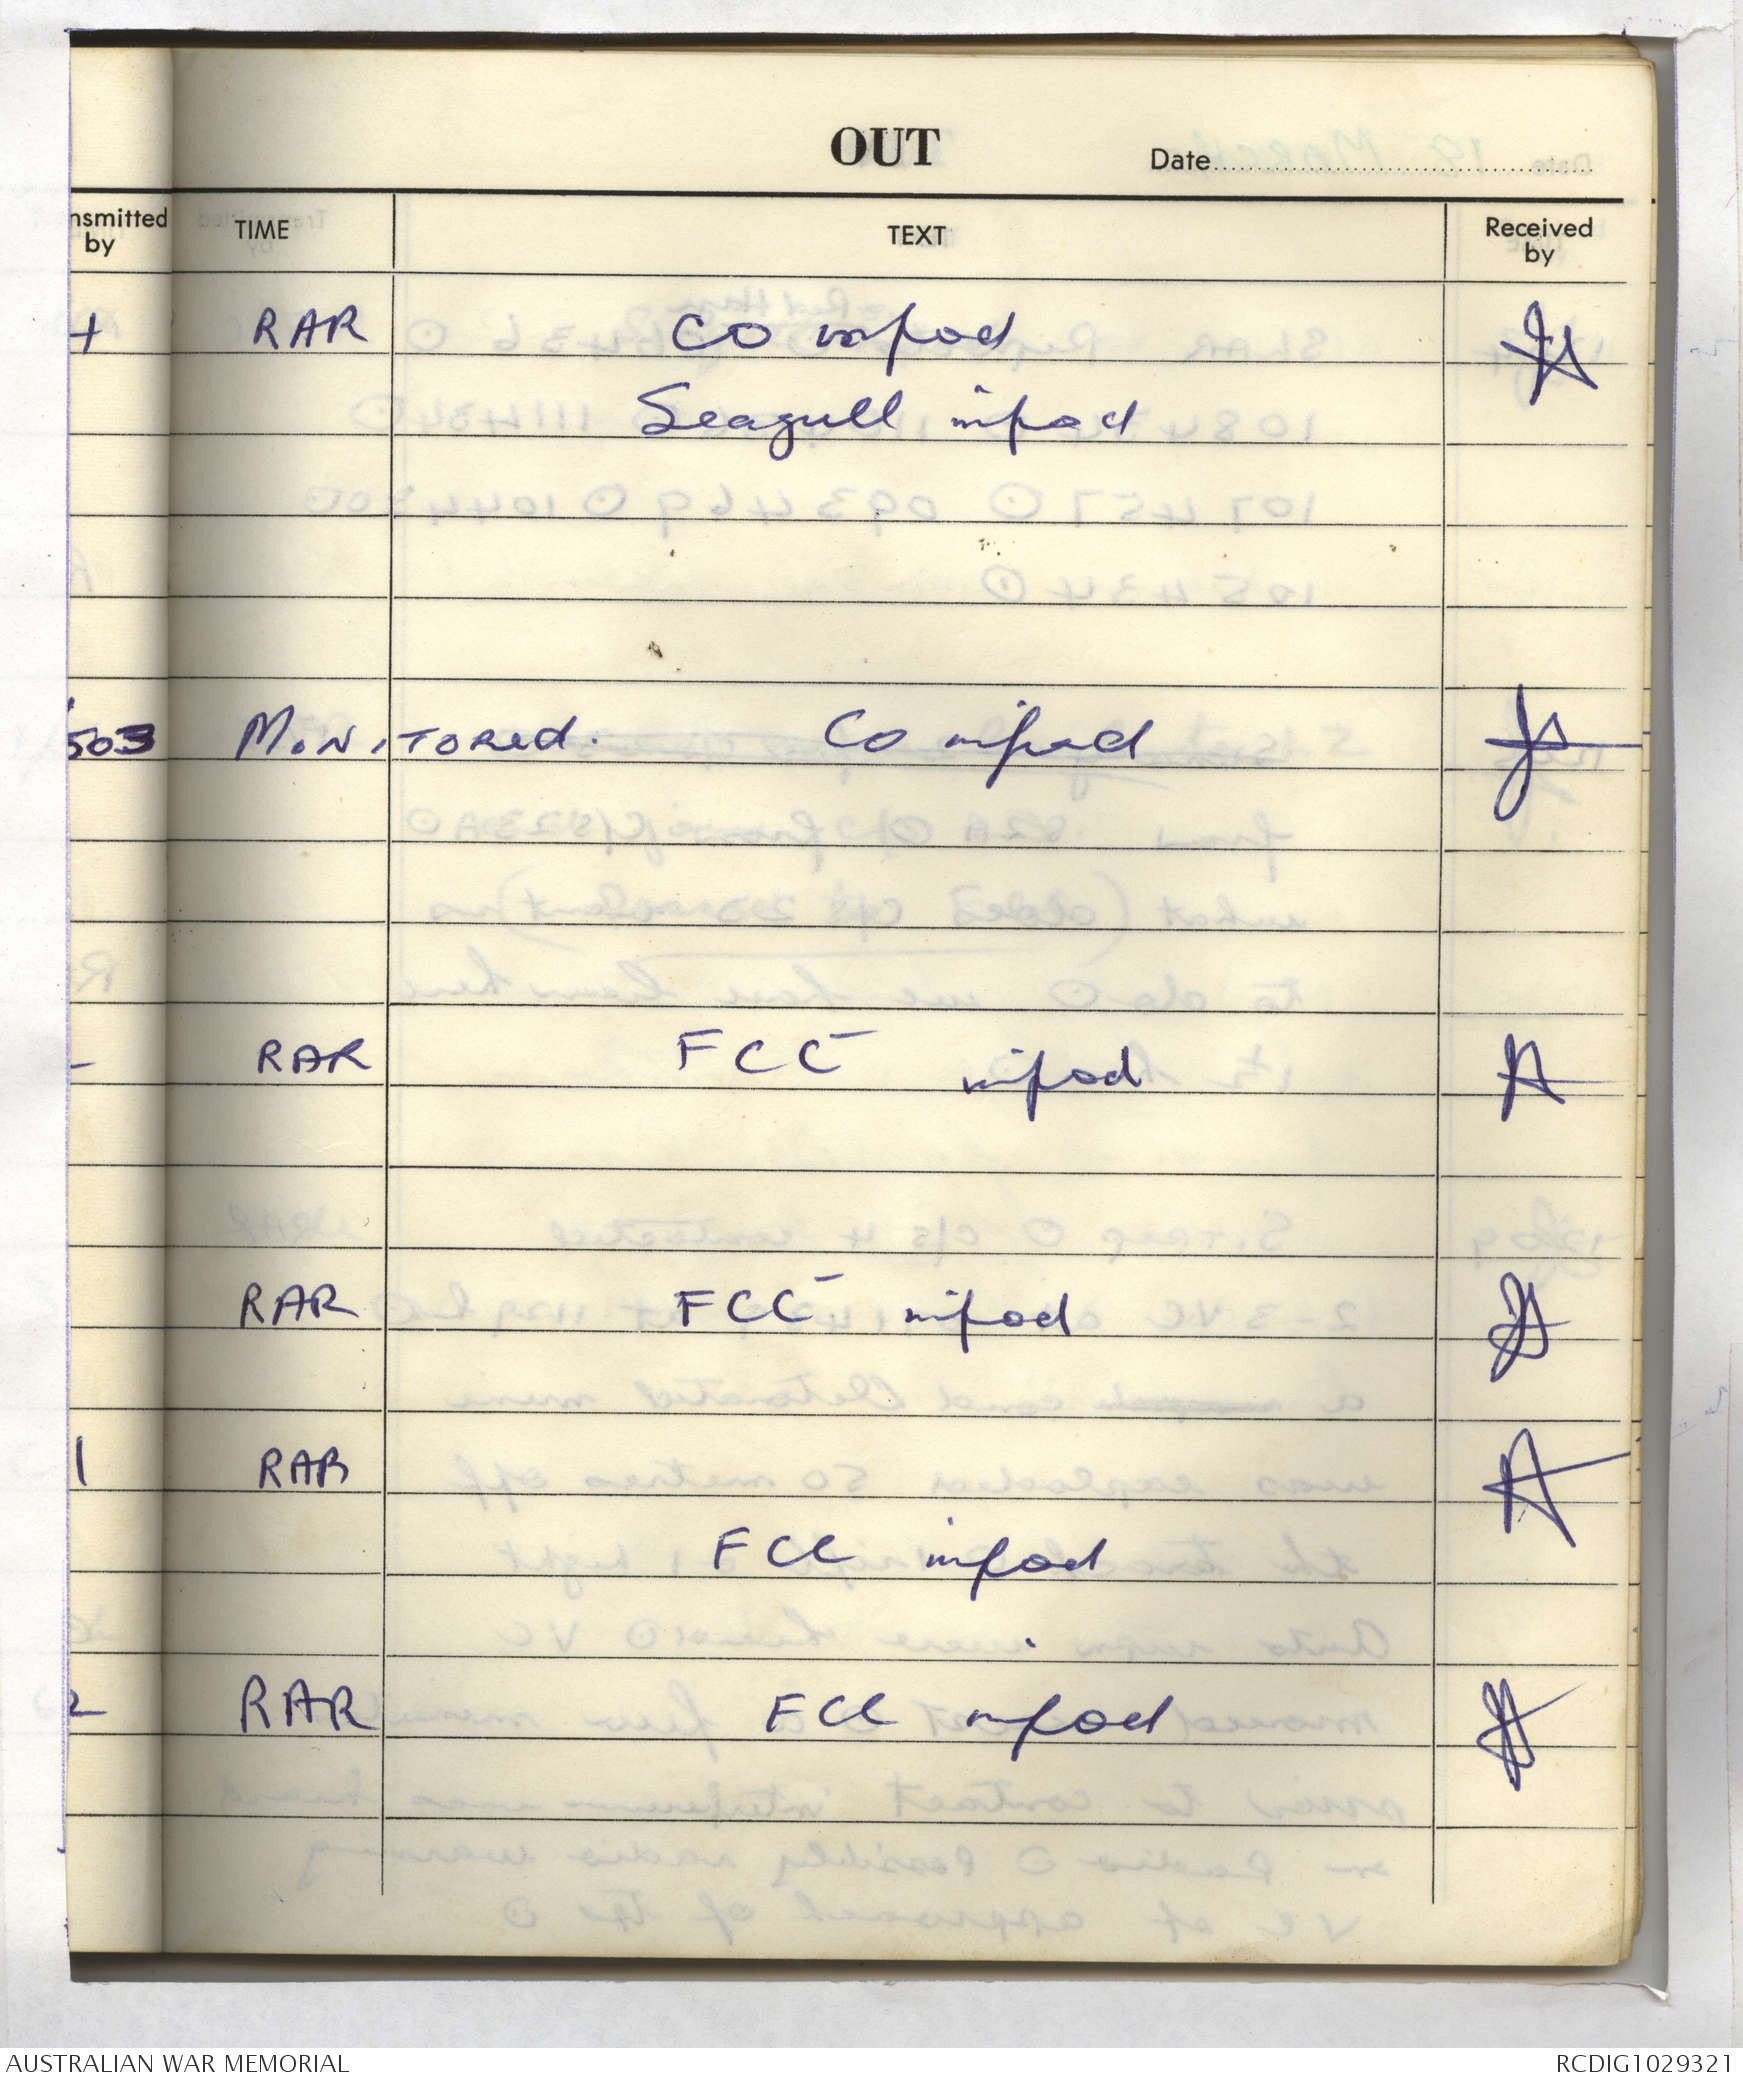 OUT
Date
nsmitted by
TIME
TEXT
Received by
RAR CO infod
Seagull infod
503 MONITORED. CO infod
RAR FCC infod
RAR FCC infod
1 RAR
FCC infod
2 RAR FCC infod
AUSTRALIAN WAR MEMORIAL
RCDIG1029321